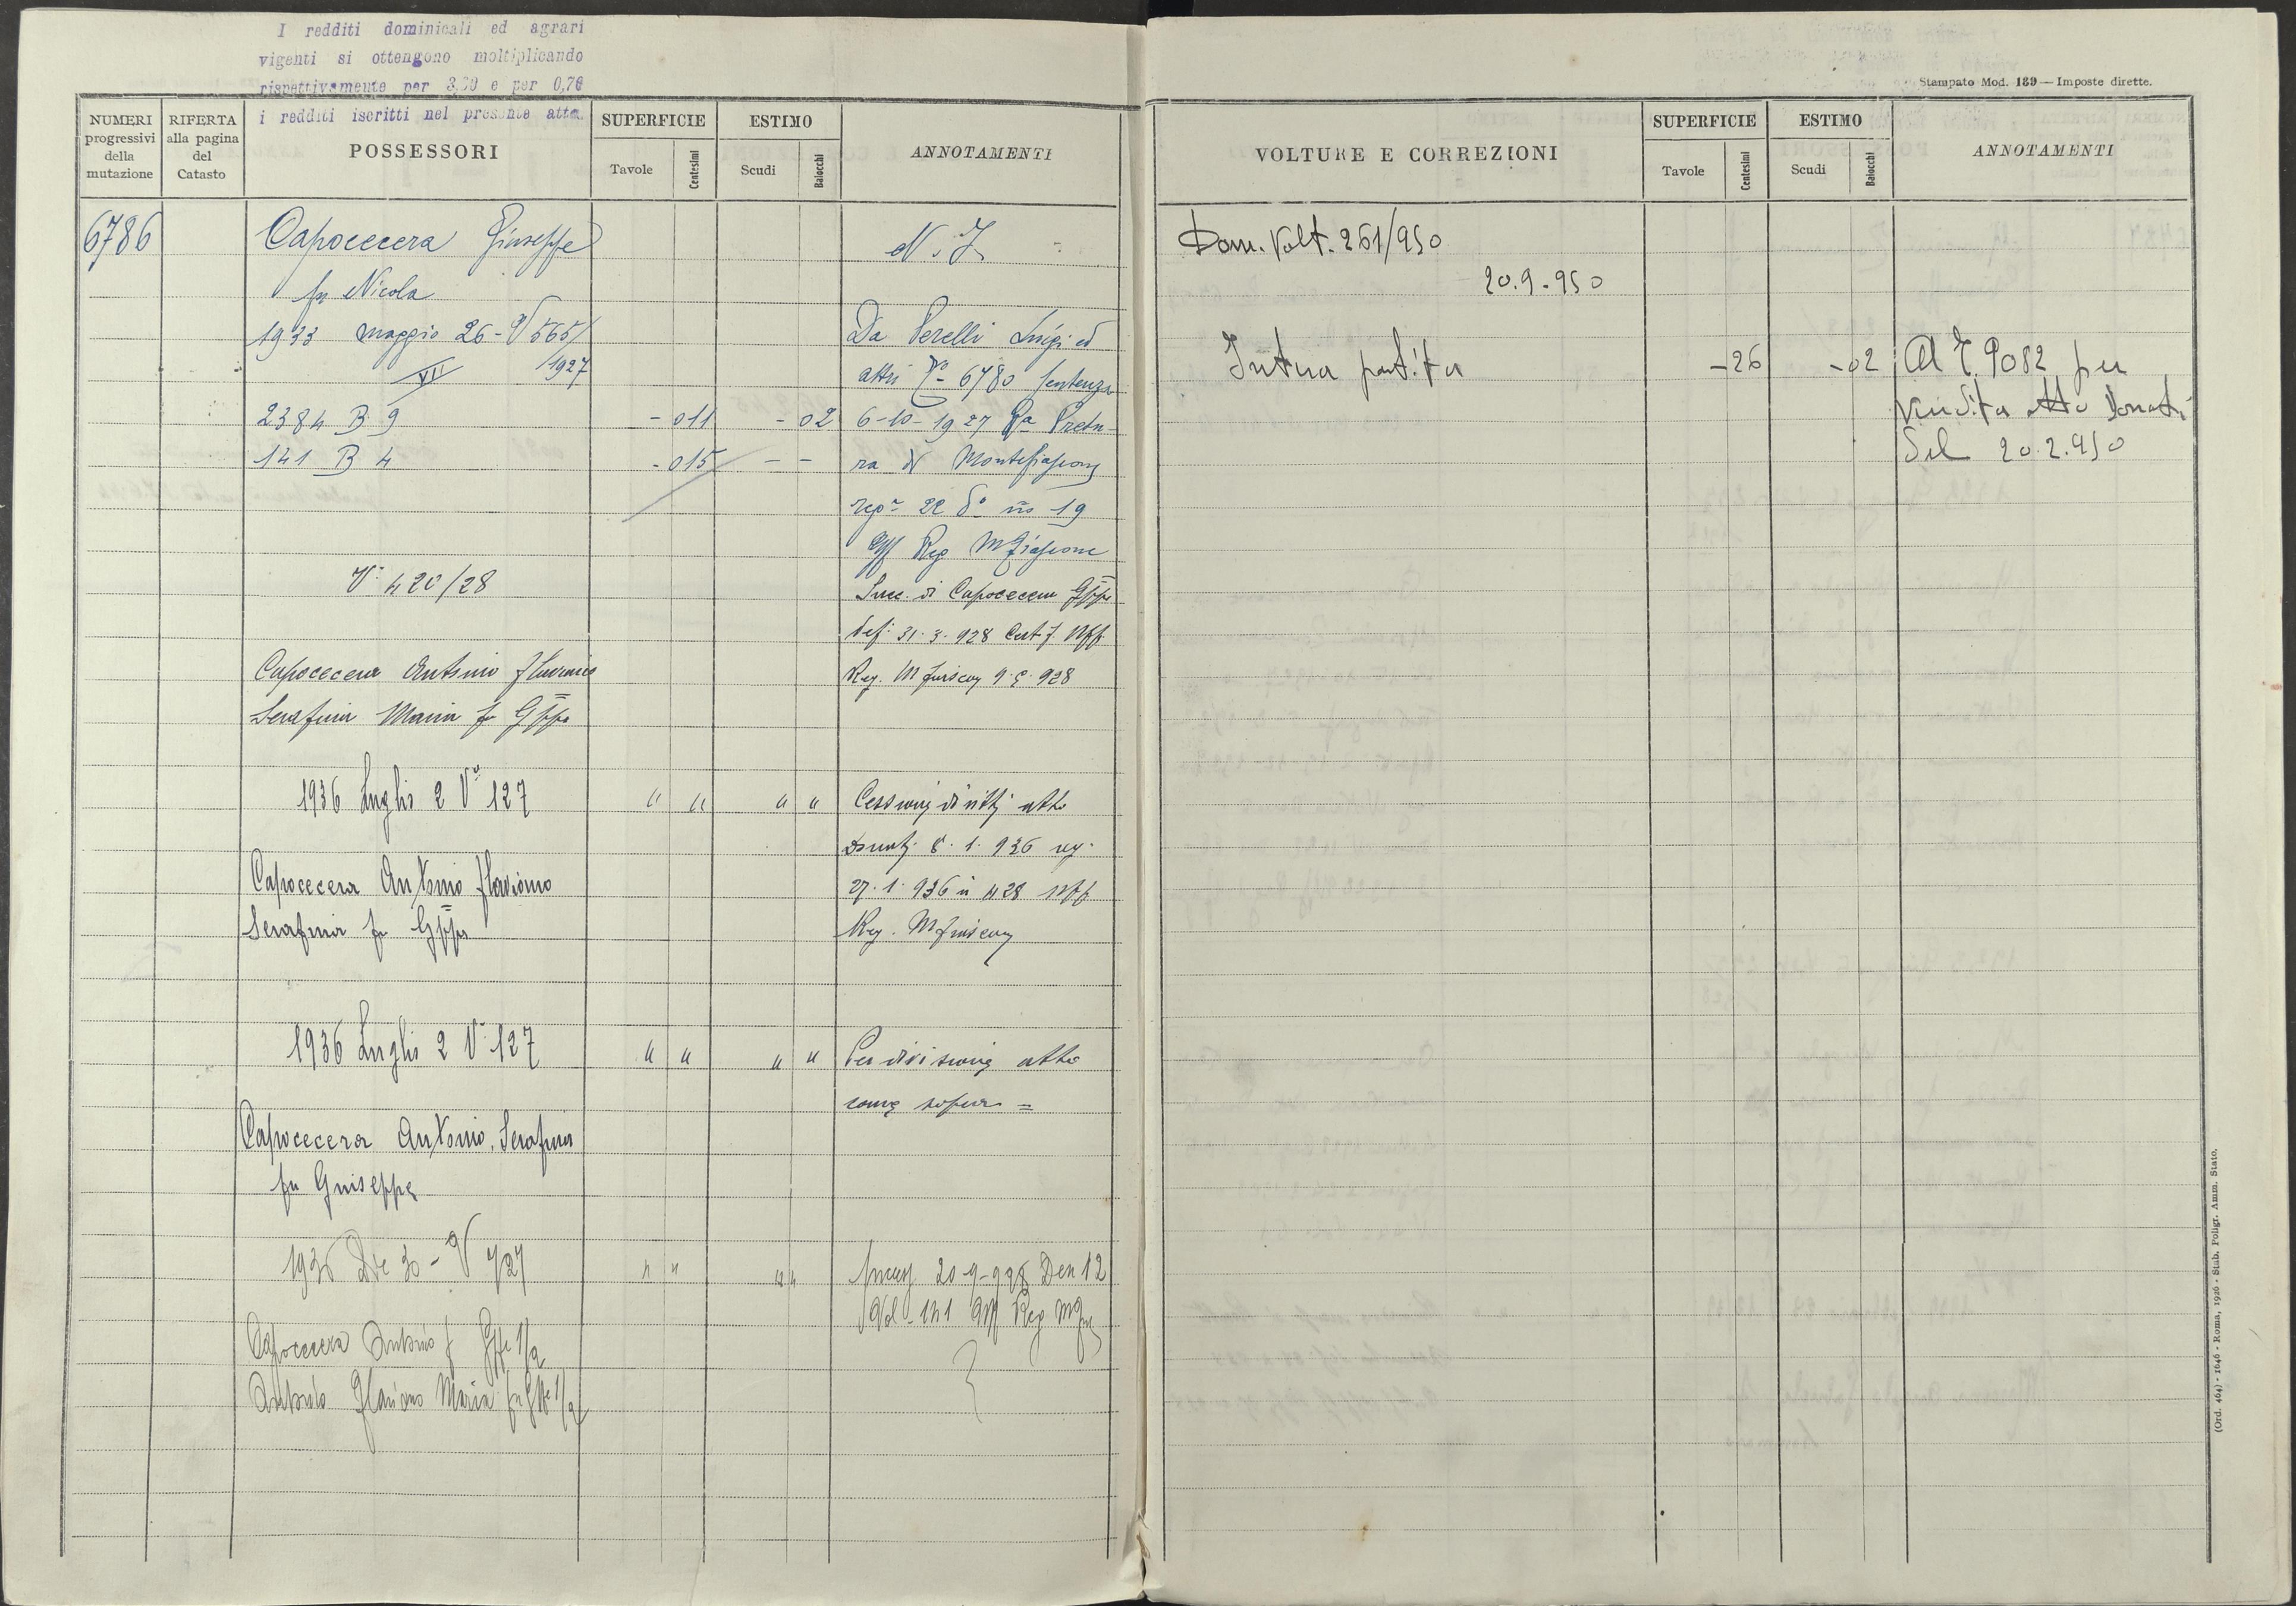 I redditi dominicali ed agrari
vigenti si ottengono moltiplicando
rispettivamente per 3,00 e per 0,70
i redditi iscritti nel presente atto.
NUMERI progressivi della mutazione
RIFERTA alla pagina del Catasto
POSSESSORI
SUPERFICIE
Tavole Centesimi
ESTIMO
Scudi Baiocchi
ANNOTAMENTI
6786 Capocecera Giuseppe N. I.
fu Nicola
1933 maggio 26 - V 565/ Da Perelli Luigi ed
VII 1927 altri P. 6780 sentenza
2384 B 9 - 011 - 02 6-10-1927 Ra Pretu-
141 B 4 - 015 - - ra di Montefiascone
22 19
Uff Reg Mfiascone
V. 420/28 Succ. di Capocecera Gppe
31. 3. 928 Uff
Capocecera Antonio Flaviano Reg. Mfiascon 928
Serafina Maria fu Gppe
1936 Luglio 2 V° 127 " " " " Cessione diritti atto
Donati 8. 1. 936 reg.
Capocecera Antonio Flaviano 27. 1. 936 n 428 Uff
Serafina fu Gppe Reg. Mfiascon
1936 Luglio 2 V. 127 " " " " Per divisione atto
come sopra =
Capocecera Antonio, Serafina
fu Giuseppe
1936 Dic 30 - V 727 " " " " 20-9-928 Den 12
Vol - 141 Uff Reg
Capocecera Antonio f Gppe 1/2
Antonio Flaviano Maria fu Gppe 1/2
Stampato Mod. 139 — Imposte dirette.
VOLTURE E CORREZIONI
SUPERFICIE
Tavole Centesimi
ESTIMO
Scudi Baiocchi
ANNOTAMENTI
Dom. Volt. 261/950
20.9.950
Intera partita -26 -02 Al P. 9082 per
vendita atto Donati
del 20.2.950
(Ord. 464) - 1646 - Roma, 1926 - Stab. Poligr. Amm. Stato.